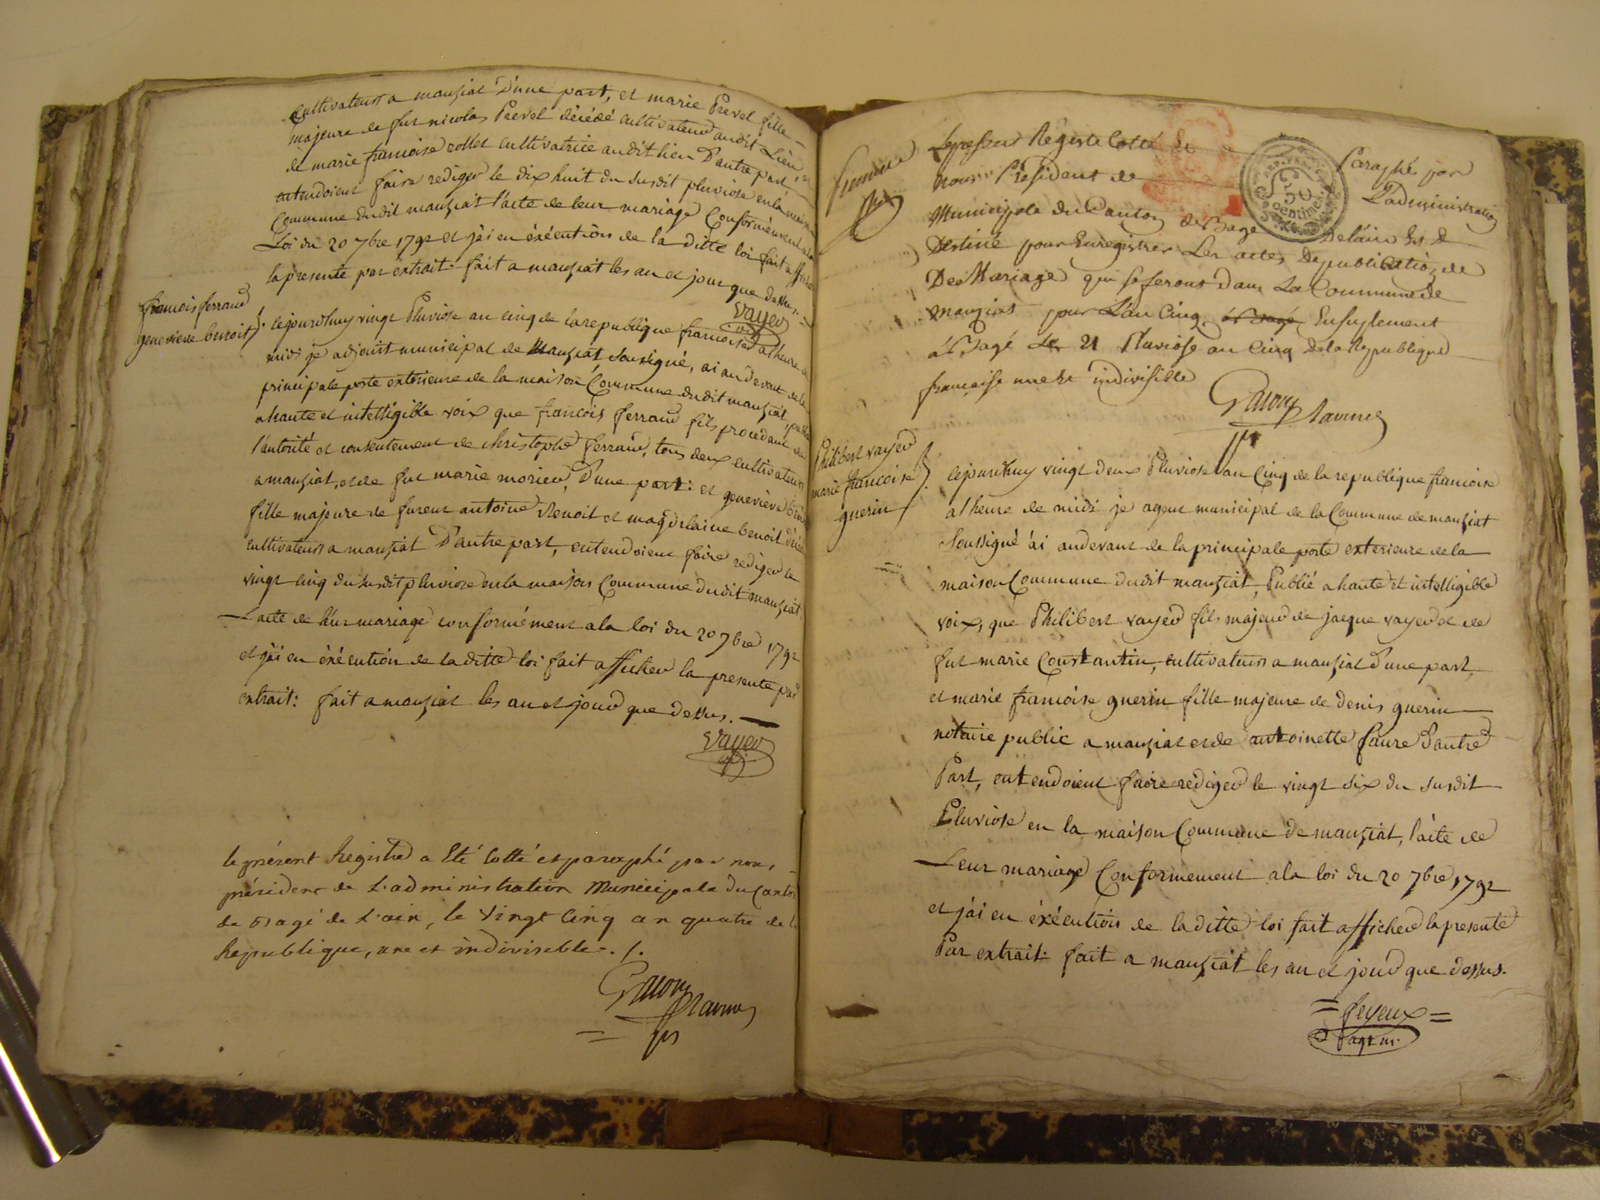 Cultivateurs a manziat D'une part, et marie Prevel fille
majeure de fut nicolas Prevel décédé cultivateur audit Lieu,
de marie francoise collet cultivatrice audit lieu D'autre part
entendoient faire rediger le dix huit du susdit pluviose en la maison
Commune dudit manziat l'acte de leur mariage Conformément a la
Loi du 20 7bre 1792 et j'ai en éxécution de la ditte loi fait afficher
la presente par extrait. fait a manziat les an et jour que dessus.
Vayer
francois ferraud
genevieve benoit
cejourd'huy vingt Pluviose an cinq de la republique francoise a lheure de
midi je adjoint municipal de Manziat, soussigné, ai au devant de la
principale porte exterieure de la maison Commune dudit manziat, publié
a haute et intelligible voix que francois ferraud fils procedant de
l'autorité et consentement de christophe ferraud, tous deux cultivateurs
a manziat, et de fut marie morier, D'une part: et genevieve benoit
fille majeure de fureur antoine Benoit et magdelaine benoit
cultivateurs a manziat D'autre part, entendoient faire rediger le
vingt cinq du susdit pluviose en la maison Commune dudit manziat
L'acte de leur mariage conformément a la loi du 20 7bre 1792
et j'ai en éxécution de la ditte loi fait afficher la presente par
extrait: fait a manziat les an et jour que dessus.
Vayer
le présent Registre a Eté Cotté et paraphé par nous,
président de L'administration Municipale du Canton
de Bagé de L'ain, le vingt Cinq an quatre de la
République, une et indivisible. /.
premiere
Le present Registre Cotté et Paraphé par
nous President de L'administration
Municipale du Canton de Bage Delain Est
Destiné pour Enregistrer Les actes De publication de
De Mariage qui se feront dans La Commune de
manziat pour L'an Cinq Enfuplement
a Bagé Le 21 Pluviose an Cinq de la Republique
francaise une et indivisible
50
Centimes
Philibert vayer
marie francoise
guerin
cejourd'huy vingt deux Pluviose an Cinq de la republique francoise
a lheure de midi je agent municipal de la Commune de manziat
Soussigné ai au devant de la principale porte exterieure de la
maison Commune dudit manziat, Publié a haute et intelligible
voix, que Philibert vayer fils majeur de jacque vayer et de
fut marie Constantin, cultivateurs a manziat d'une part,
et marie francoise guerin fille majeure de denis guerin
notaire public a manziat et de antoinette faure D'autre
Part, entendoient faire rediger le vingt six du susdit
Pluviose en la maison Commune de manziat, l'acte de
Leur mariage Conformement a la loi du 20 7bre 1792
et j'ai en éxécution de la ditte loi fait afficher la presente
Par extrait: fait a manziat les an et jour que dessus.
feyeux
agt m.